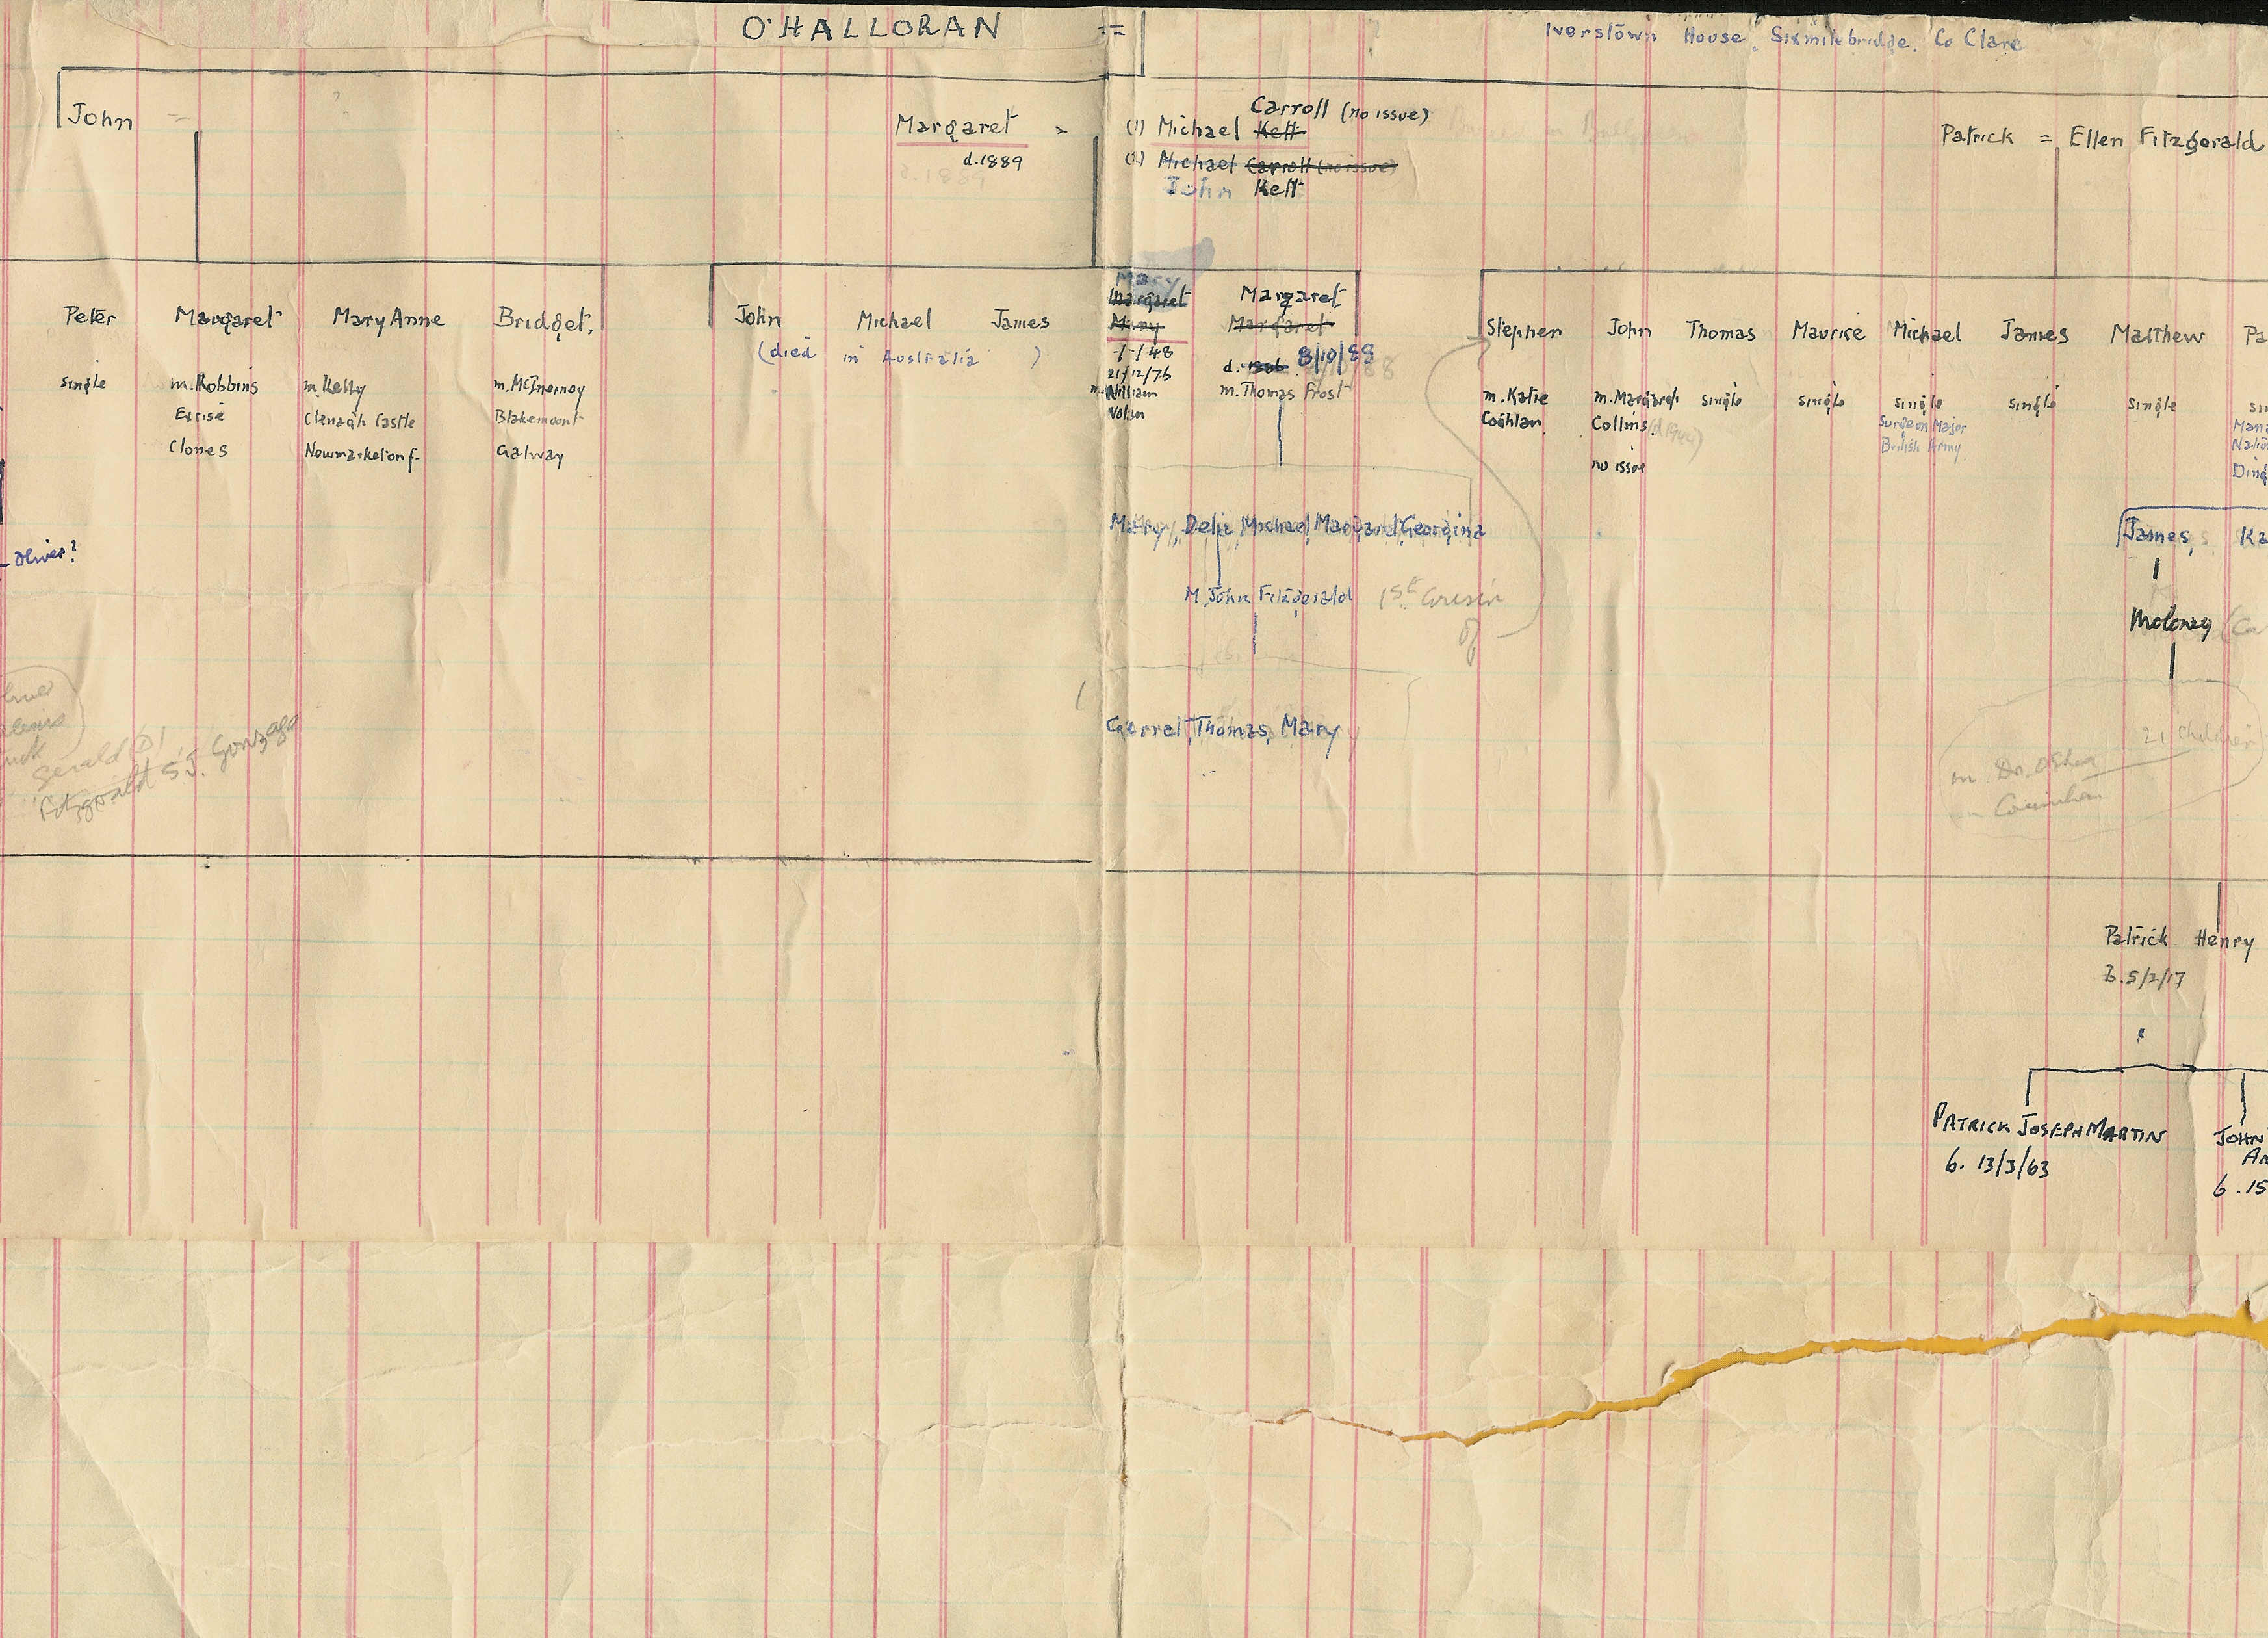 O'HALLORAN =
Iverstown House, Sixmilebridge. Co Clare
John = ?
Margaret =
d. 1889
(1) Michael Kett Carroll (no issue)
(2) Michael Carroll (no issue)
John Kett
Patrick = Ellen Fitzgerald
Peter
single
Margaret
m. Robbins
Excise
Clones
Mary Anne
m. Kelly
Clenagh Castle
Newmarket on f.
Bridget,
m. McInerney
Blakemount
Galway
John Michael James
(died in Australia )
Mary
Margaret
Mary
-/-/48
21/12/76
m. William
Nolan
Margaret
Margaret
d. 1886 8/10/88
m. Thomas Frost
Stephen
m. Katie
Coghlan
John
m. Margaret
Collins
no issue
Thomas
single
Maurice
single
Michael
single
Surgeon Major
British Army
James
single
Matthew
single
Pa
sin
Mana
Natio
Ding
Mary, Delia, Michael, Margaret, Georgina
M. John Fitzgerald 1st Cousin
of
Gerret, Thomas, Mary
Oliver?
Gerald
Fitzgerald S.J. Gonzaga
James, Ka
Moloney (Ca
21 children
m. Dr. O'Shea
Patrick Henry
b. 5/2/17
PATRICK JOSEPH MARTIN
b. 13/3/63
JOHN
AN
b. 15